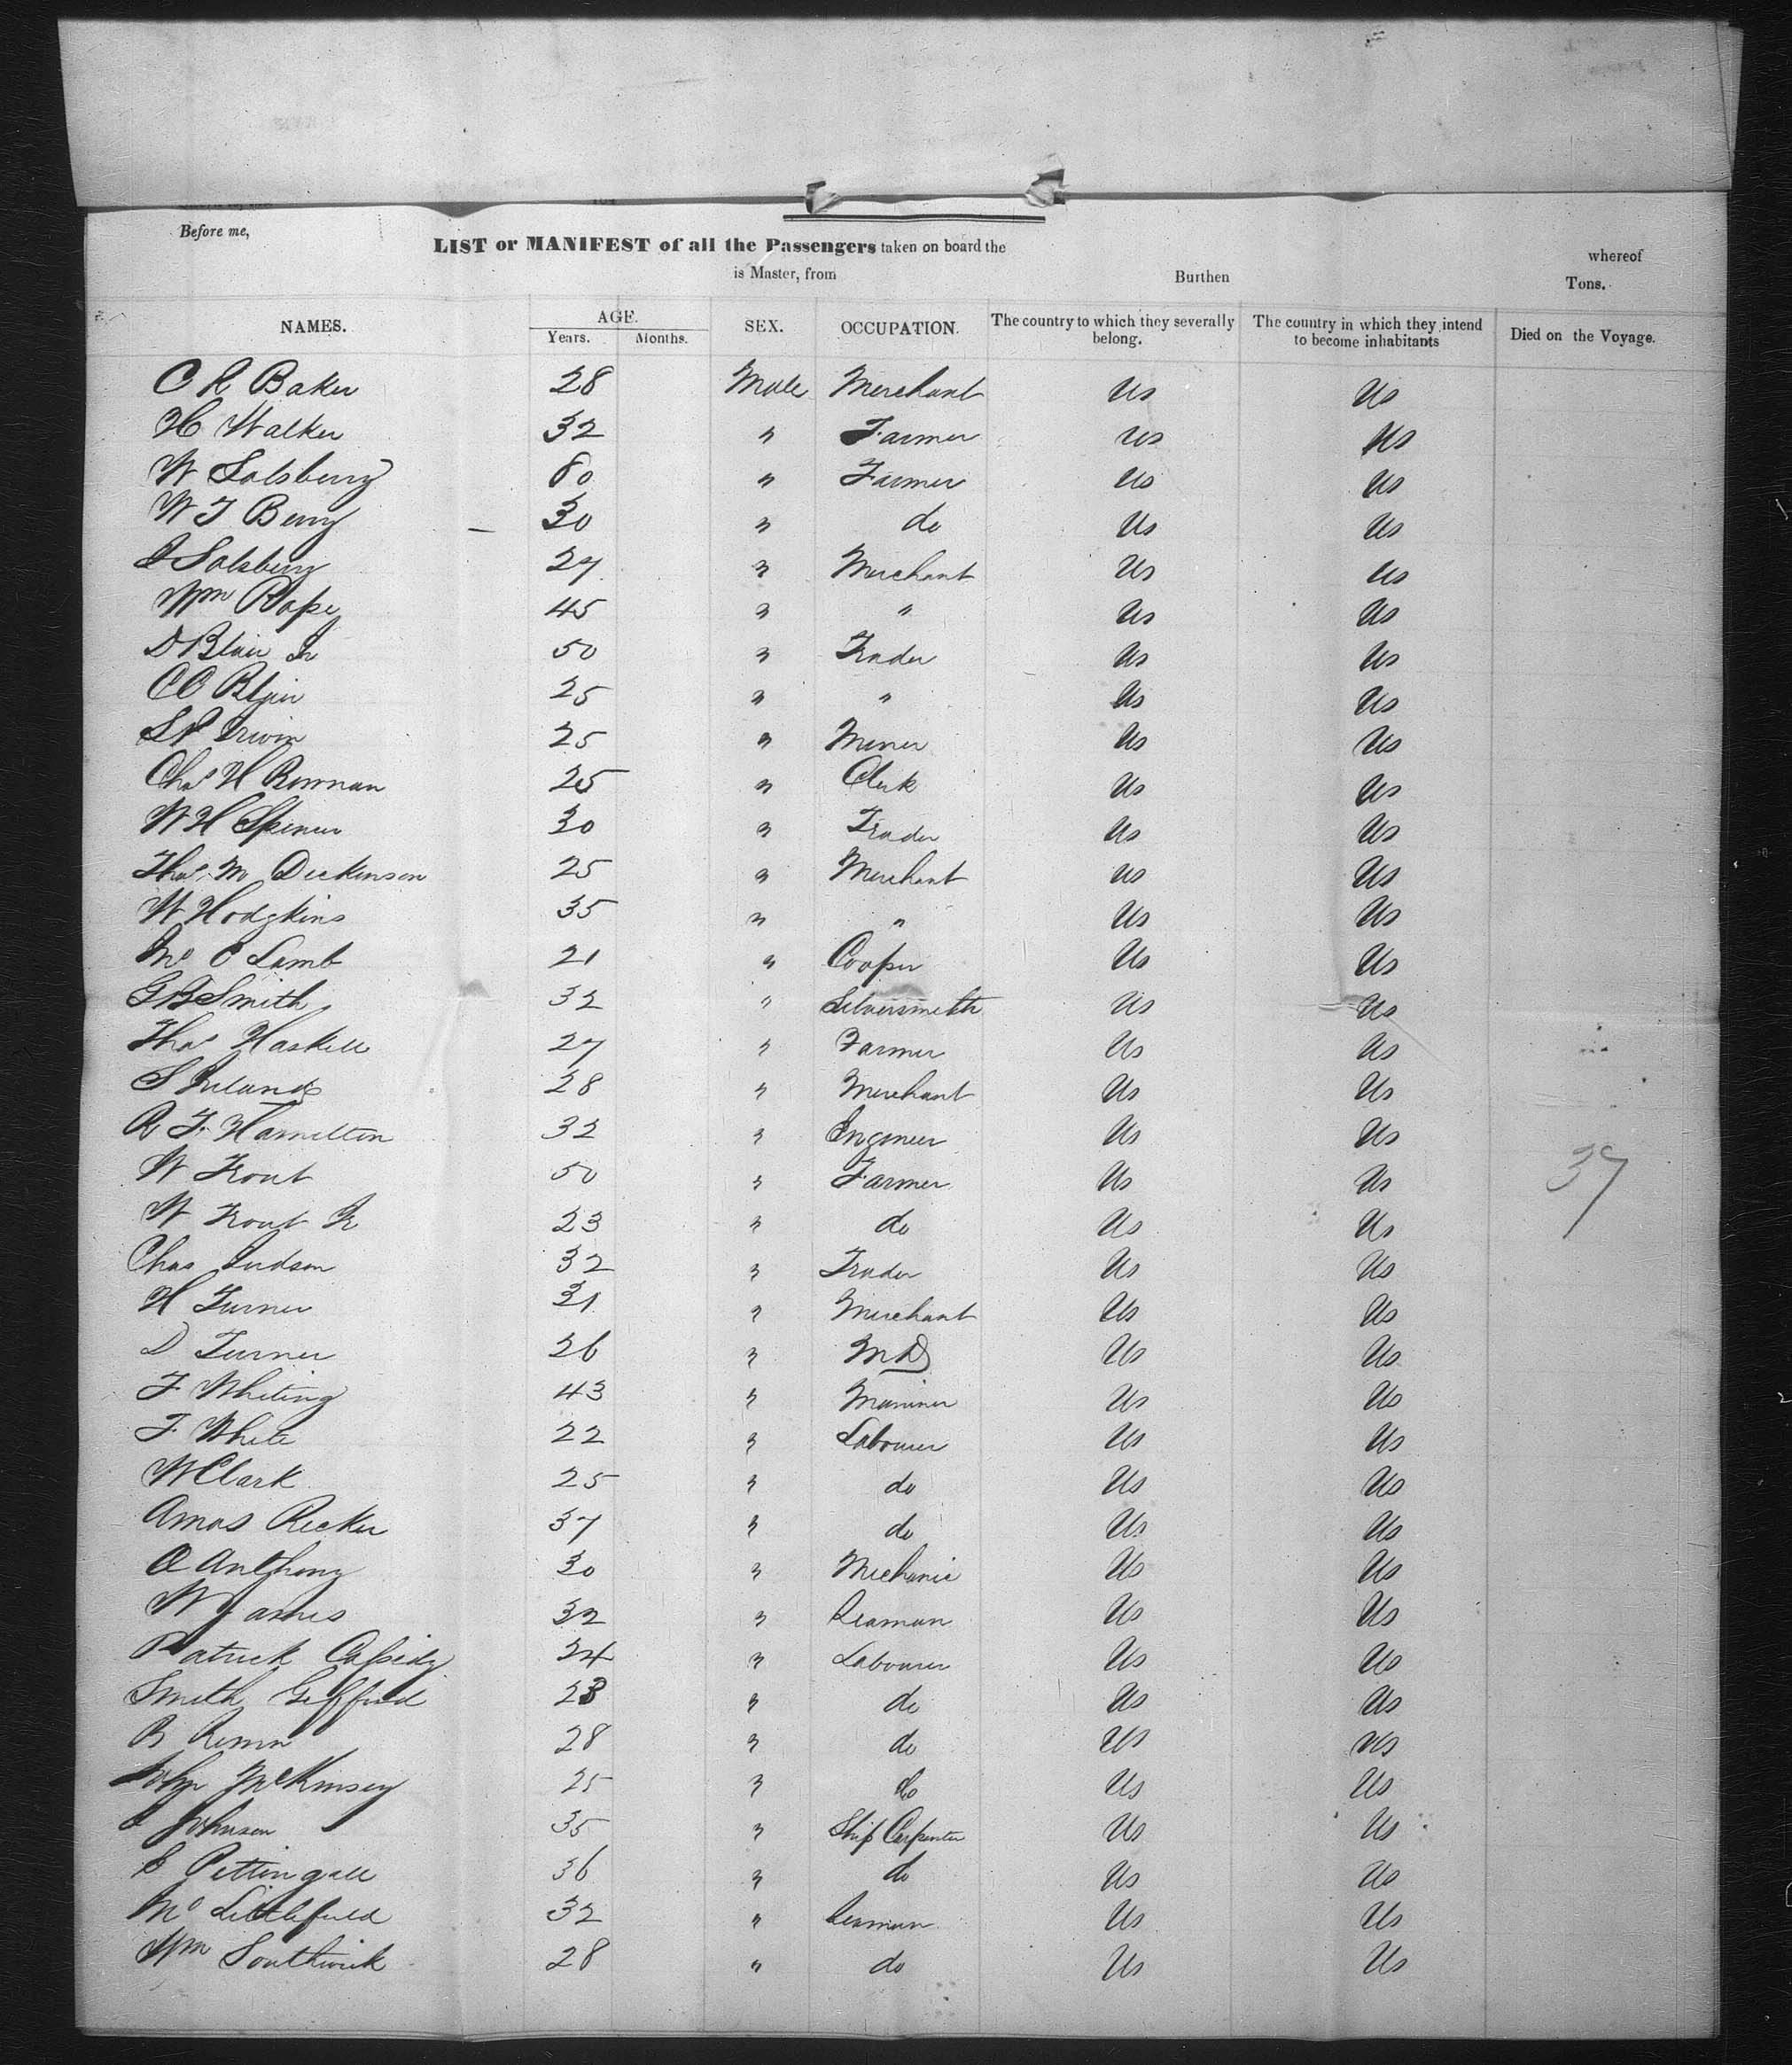 Before me,
LIST or MANIFEST of all the Passengers taken on board the whereof
is Master, from Burthen Tons.
NAMES. AGE. SEX. OCCUPATION. The country to which they severally belong. The country in which they intend to become inhabitants Died on the Voyage.
Years. Months.
C R Baker 28 Male Merchant Us Us
H Walker 32 " Farmer Us Us
W Salsberry 80 " Farmer Us Us
W T Berry 30 " do Us Us
Salsberry 27 " Merchant Us Us
Wm Pope 45 " " Us Us
D Blair Jr 50 " Trader Us Us
C O Blair 25 " " Us Us
S P Irwin 25 " Miner Us Us
Chas H Bowman 25 " Clerk Us Us
W H Spencer 30 " Trader Us Us
Thos M Dickenson 25 " Merchant Us Us
W Hodgkins 35 " " Us Us
Lamb 21 " Cooper Us Us
G B Smith 32 " Silversmith Us Us
Thos Haskell 27 " Farmer Us Us
S Ireland 28 " Merchant Us Us
R F Hamilton 32 " Engineer Us Us
W Trout 50 " Farmer Us Us 37
W Trout Jr 23 " do Us Us
Chas Judson 32 " Trader Us Us
H Turner 31 " Merchant Us Us
D Turner 26 " MD Us Us
F Whiting 43 " Mariner Us Us
F White 22 " Labourer Us Us
W Clark 25 " do Us Us
Amos Ricker 37 " do Us Us
Anthony 30 " Mechanic Us Us
W James 32 " Seaman Us Us
Patrick Cassidy 24 " Labourer Us Us
Smith Gifford 23 " do Us Us
28 " do Us Us
John McKinsey 25 " do Us Us
Johnson 35 " Ship Carpenter Us Us
Pettingall 36 " do Us Us
Littlefield 32 " Seaman Us Us
Wm Southwick 28 " do Us Us